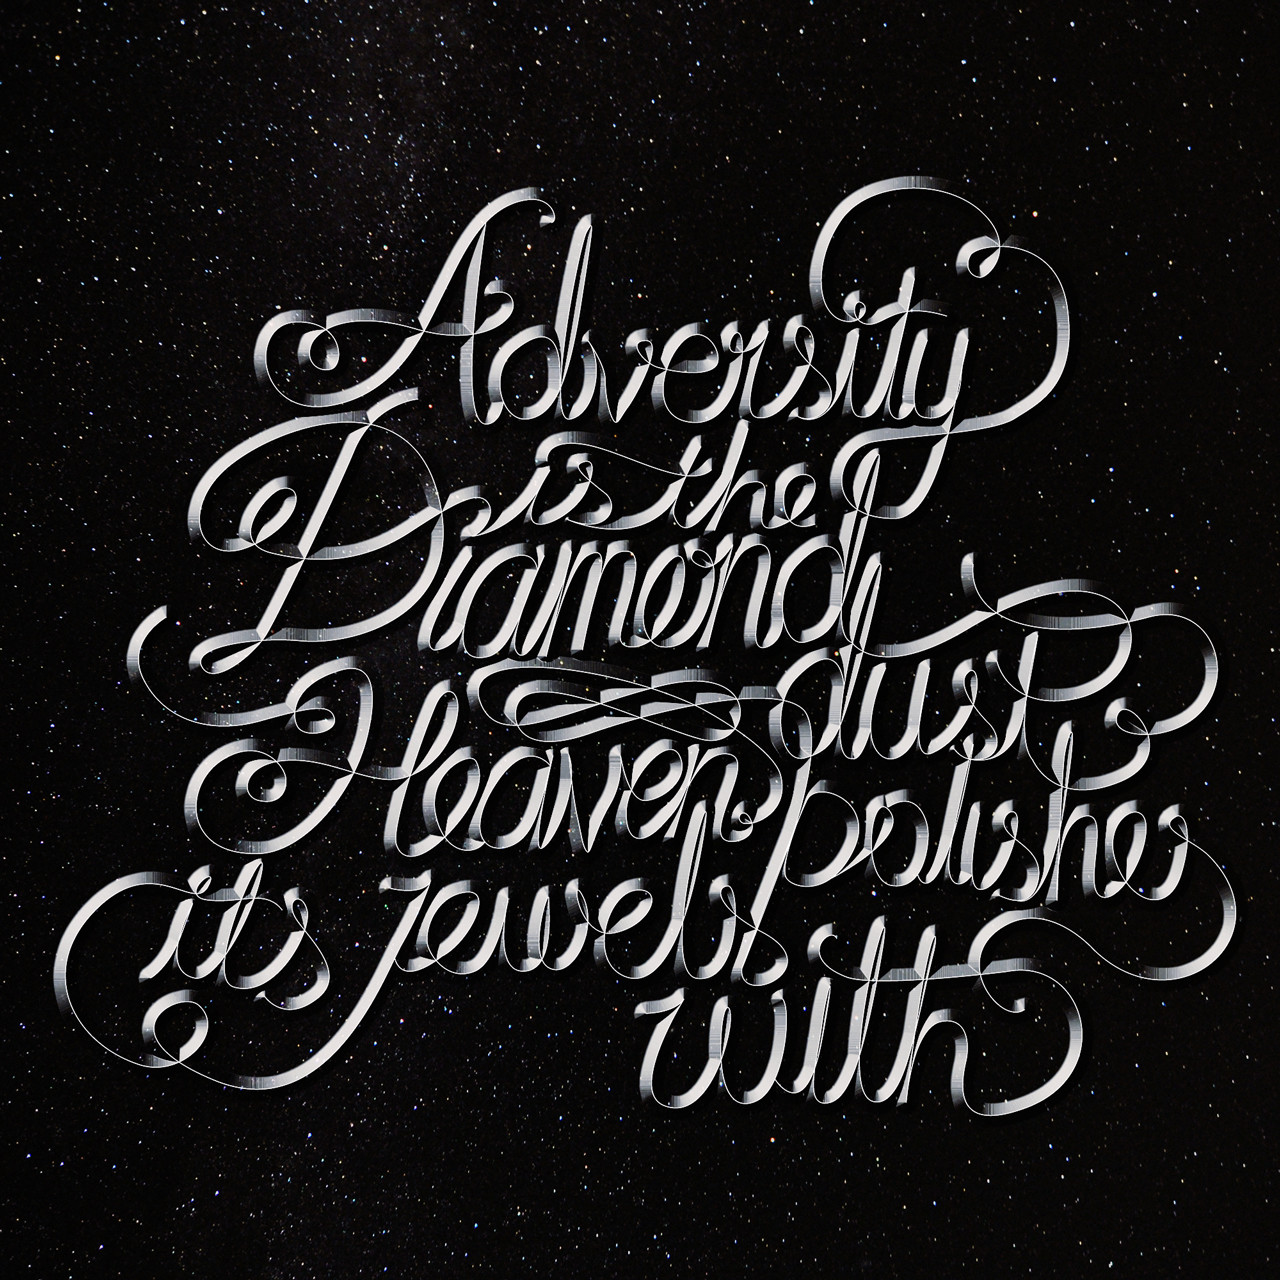 Adversity
is the
Diamond
dust
Heaven polishes
it's jewels
with